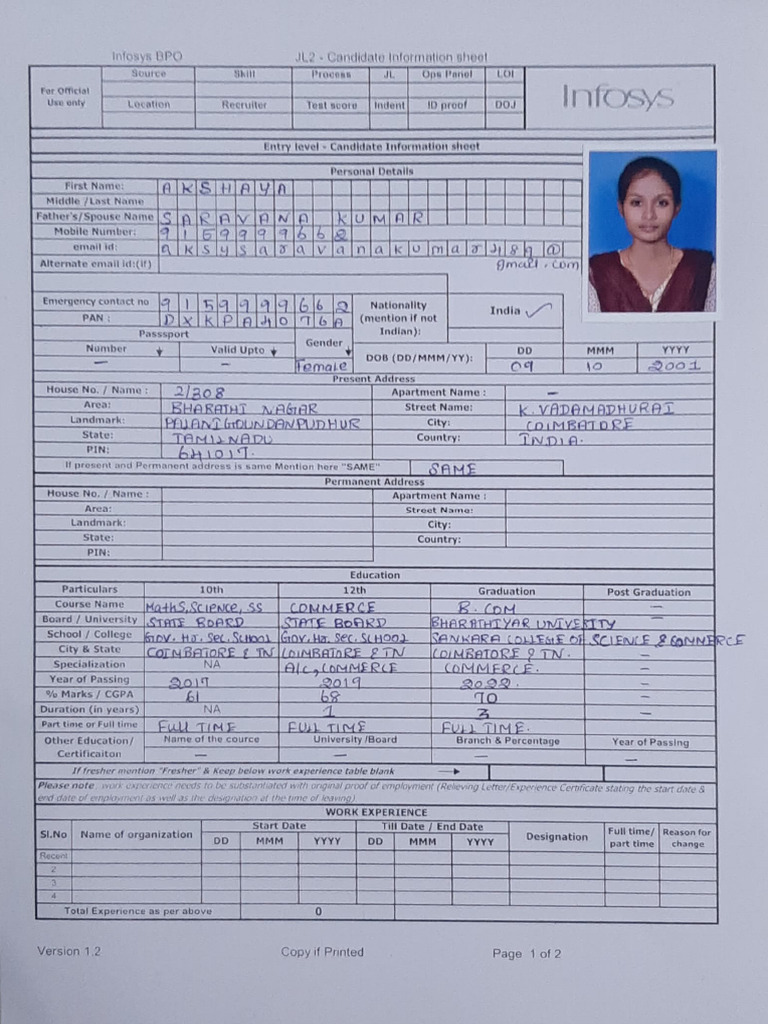 Infosys BPO JL2 - Candidate Information sheet
For Official Use only Source Skill Process JL Ops Panel LOI
Location Recruiter Test score Indent ID proof DOJ
Infosys
Entry level - Candidate Information sheet
Personal Details
First Name: AKSHAYA
Middle /Last Name
Father's/Spouse Name SARAVANA KUMAR
Mobile Number: 9159999662
email id: aksysaravanakumar489@
gmail.com
Alternate email id:(if)
Emergency contact no 9159999662 Nationality (mention if not Indian): India ✓
PAN : DXKPA4076A
Passsport Gender
Number Valid Upto Female DOB (DD/MMM/YY): DD MMM YYYY
— — 09 10 2001
Present Address
House No. / Name : 2/308 Apartment Name : —
Area: BHARATHI NAGAR Street Name: K. VADAMADHURAI
Landmark: PALANIGOUNDANPUDHUR City: COIMBATORE
State: TAMILNADU Country: INDIA.
PIN: 641017.
If present and Permanent address is same Mention here "SAME" SAME
Permanent Address
House No. / Name : Apartment Name :
Area: Street Name:
Landmark: City:
State: Country:
PIN:
Education
Particulars 10th 12th Graduation Post Graduation
Course Name Maths, Science, SS COMMERCE B. COM —
Board / University STATE BOARD STATE BOARD BHARATHIYAR UNIVESITY —
School / College Gov. Hr. Sec. School Gov. Hr. Sec. School SANKARA COLLEGE OF SCIENCE & COMMERCE
City & State COIMBATORE & TN COIMBATORE & TN COIMBATORE & TN. —
Specialization NA A/C, COMMERCE COMMERCE. —
Year of Passing 2017 2019 2022. —
% Marks / CGPA 61 68 70 —
Duration (in years) NA 1 3 —
Part time or Full time FULL TIME FULL TIME FULL TIME. —
Other Education/ Certificaiton Name of the cource University /Board Branch & Percentage Year of Passing
— — — —
If fresher mention "Fresher" & Keep below work experience table blank
Please note: work experience needs to be substantiated with original proof of employment (Relieving Letter/Experience Certificate stating the start date &
end date of employment as well as the designation at the time of leaving)
WORK EXPERIENCE
Sl.No Name of organization Start Date Till Date / End Date Designation Full time/ part time Reason for change
DD MMM YYYY DD MMM YYYY
Recent
2
3
4
Total Experience as per above 0
Version 1.2 Copy if Printed Page 1 of 2